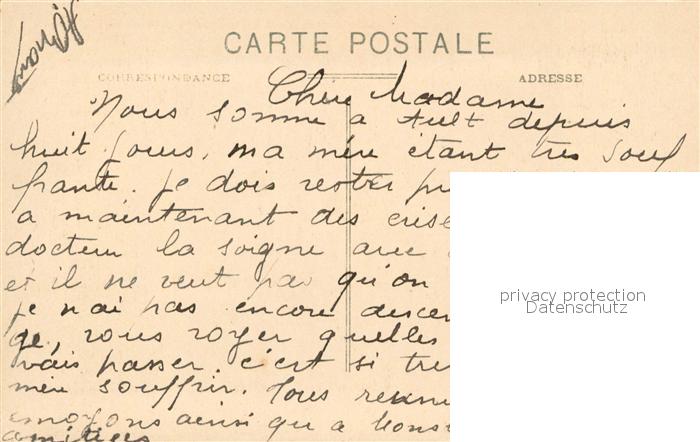 CARTE POSTALE
CORRESPONDANCE
ADRESSE
Cher Madame
Nous somme a Ault depuis
huit jours, ma mère étant très souf
frante. je dois rester
a maintenant des crise
docteur la soigne avec
et il ne veut pas qu'on
je n'ai pas encore
ge, vous voyer quelles
vais passer. c'est si
mère souffrir. Nous
envoyons ainsi qu a
amitiées
privacy protection
Datenschutz